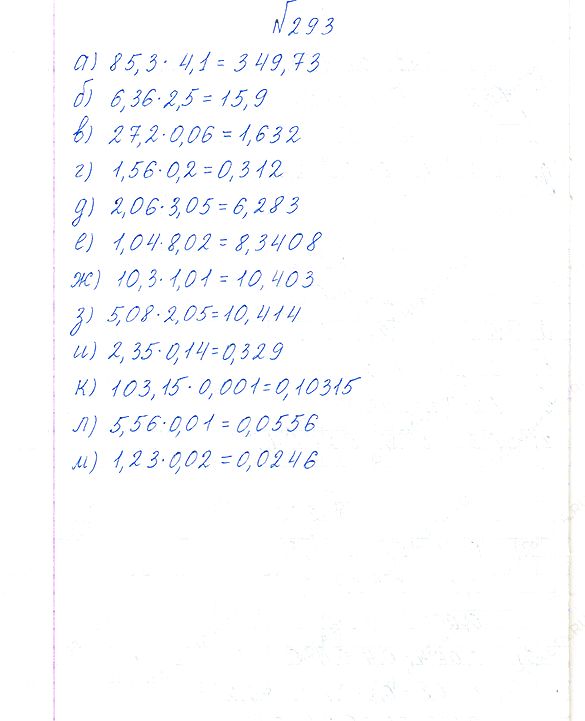 №293
а) 85,3 · 4,1 = 349,73
б) 6,36 · 2,5 = 15,9
в) 27,2 · 0,06 = 1,632
г) 1,56 · 0,2 = 0,312
д) 2,06 · 3,05 = 6,283
е) 1,04 · 8,02 = 8,3408
ж) 10,3 · 1,01 = 10,403
з) 5,08 · 2,05 = 10,414
и) 2,35 · 0,14 = 0,329
к) 103,15 · 0,001 = 0,10315
л) 5,56 · 0,01 = 0,0556
м) 1,23 · 0,02 = 0,0246